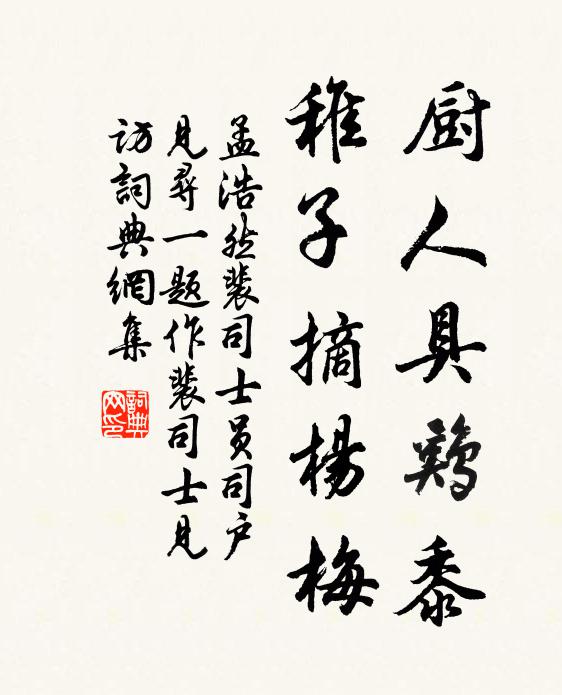 厨人具鷄黍
稚子摘楊梅
孟浩然裴司士员司户
見尋一题作裴司士見
訪詞典網集
詞典网印